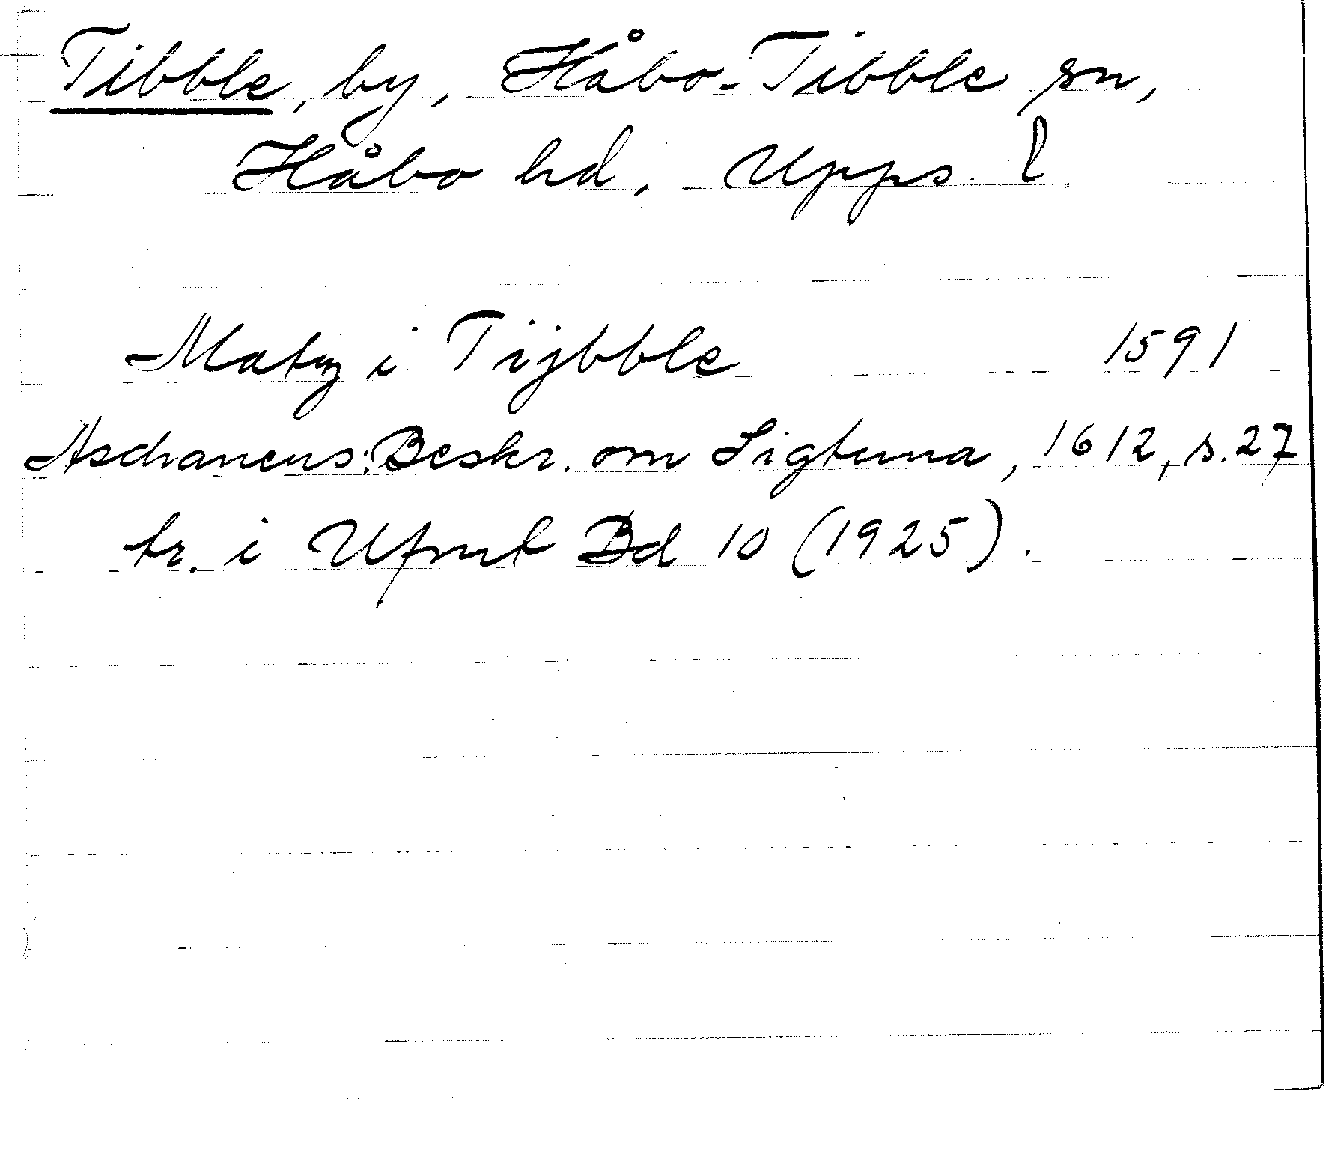 Tibble, by, Håbo-Tibble sn,
Håbo hd, Upps. l
Matz i Tijbble 1591
Aschaneus: Beskr. om Sigtuna, 1612, s. 27
tr. i Ufmt Bd 10 (1925).